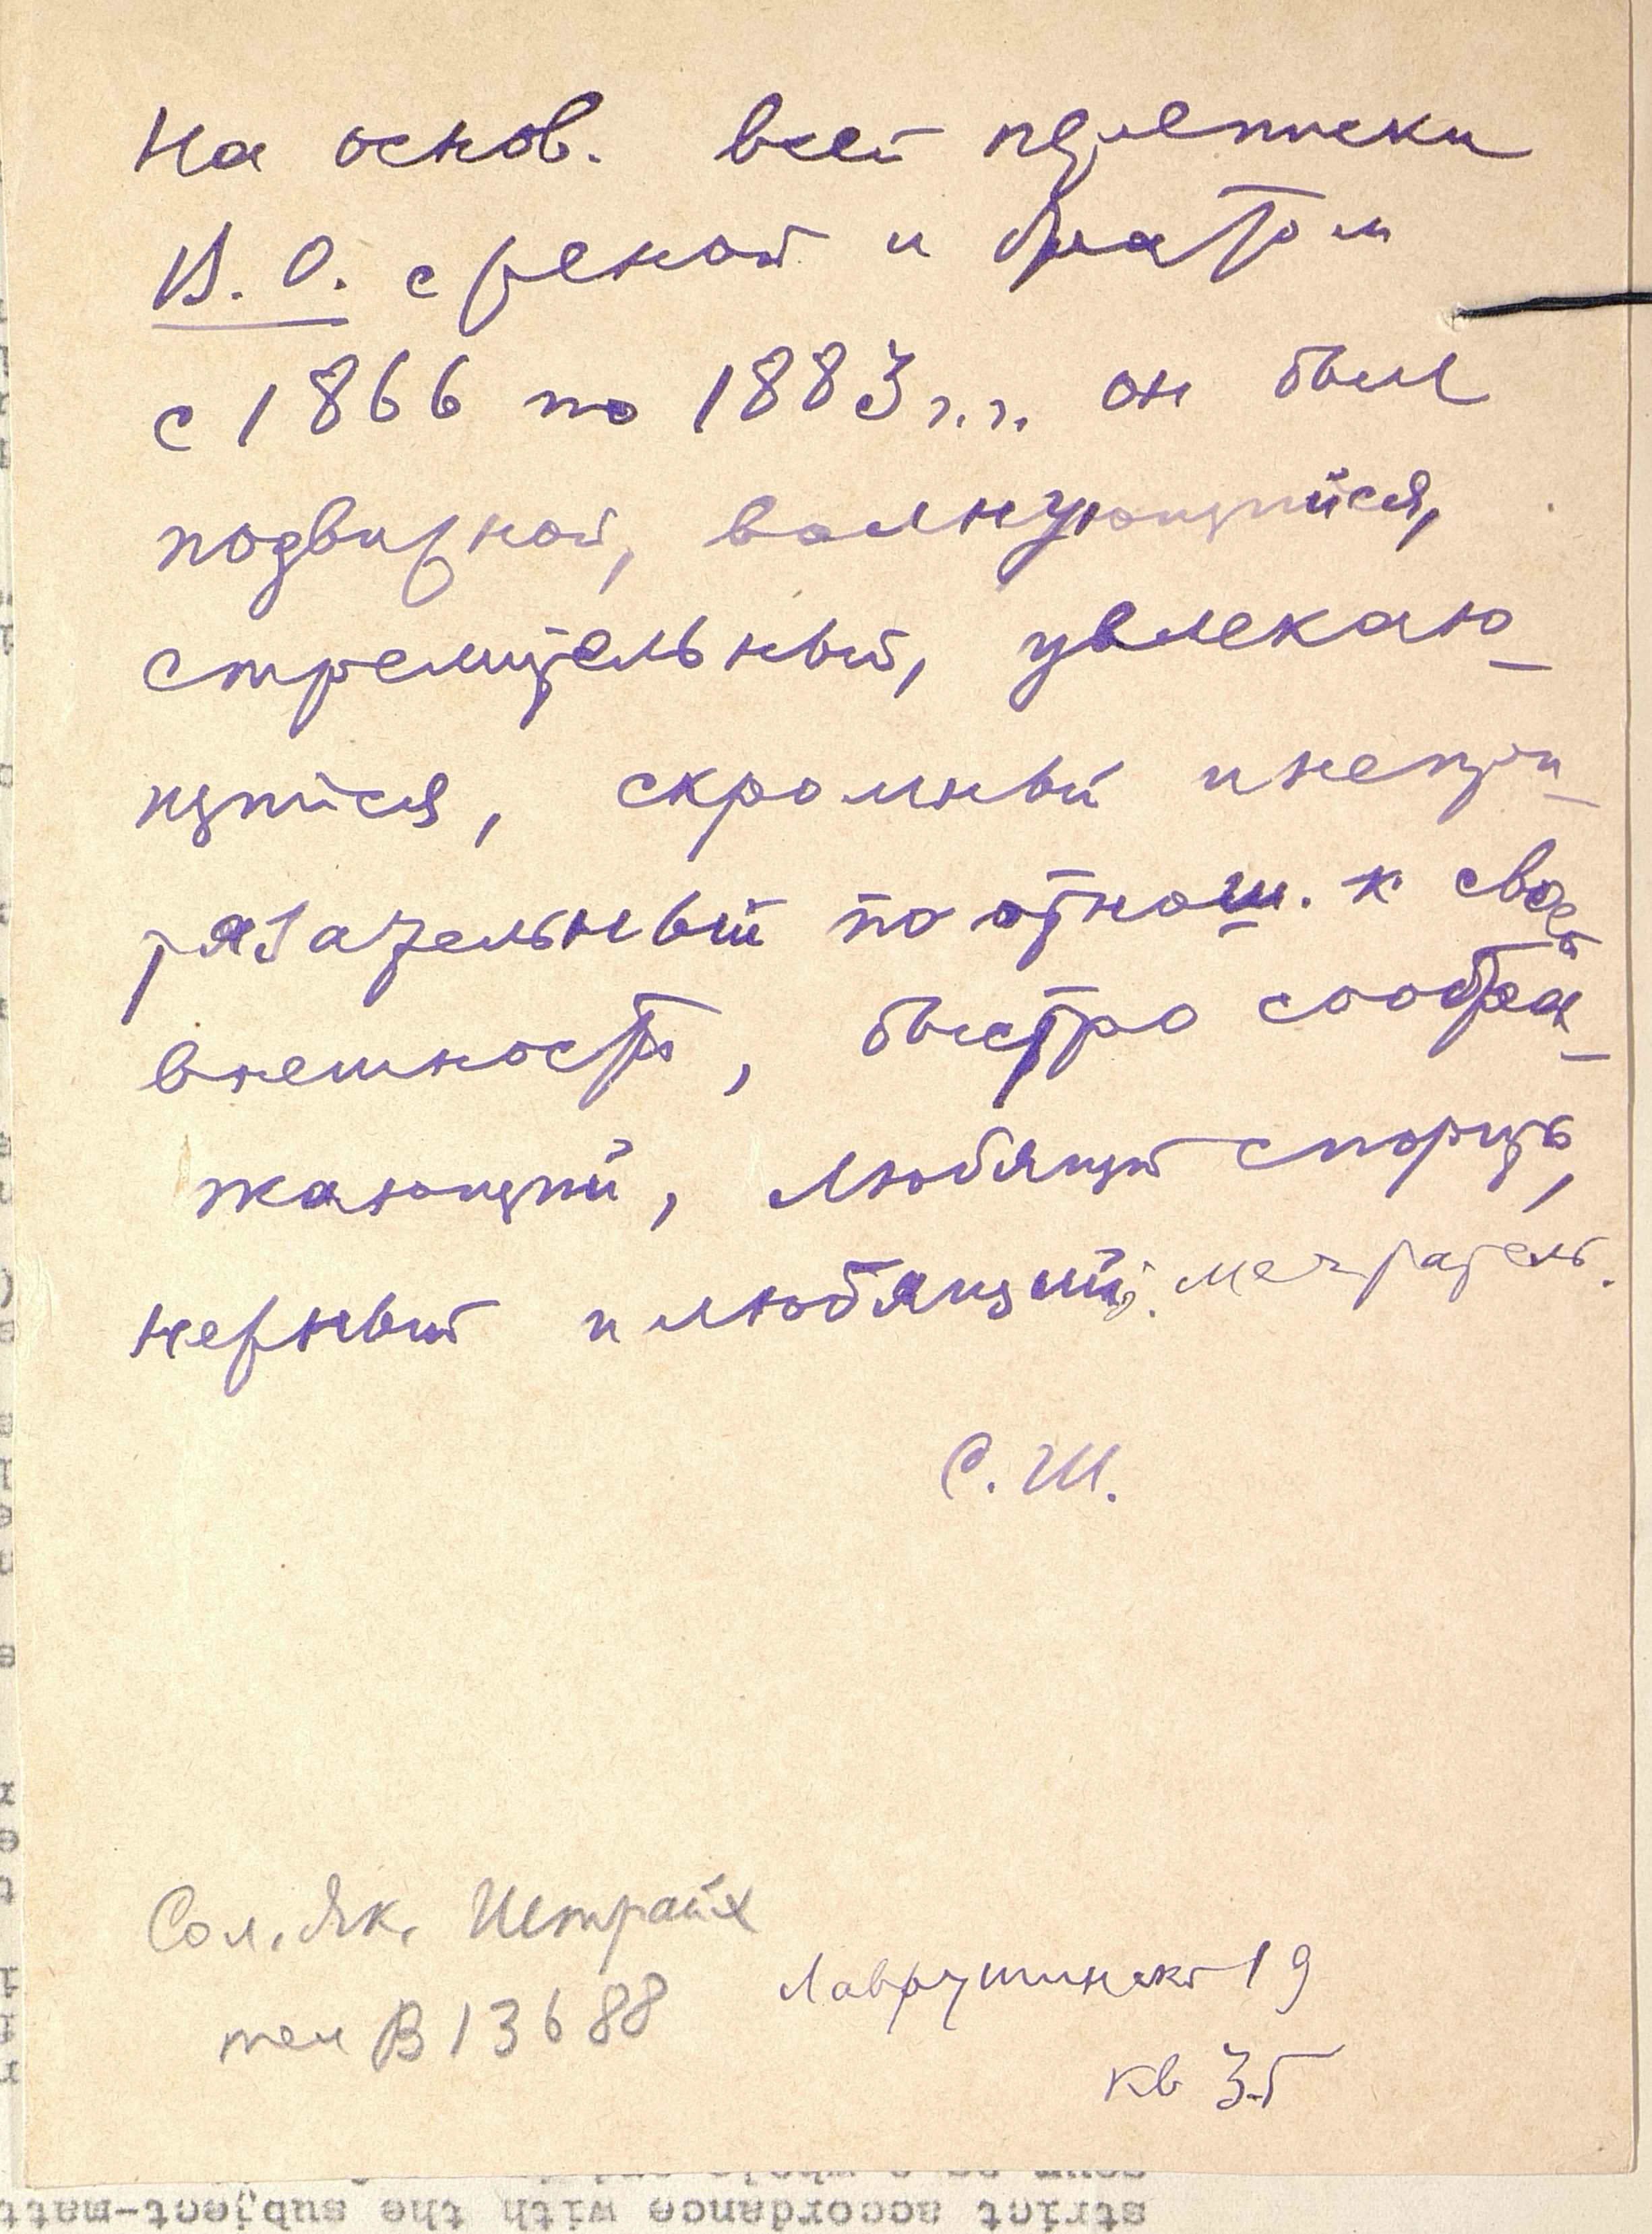 На основ. всей переписки
В. О. с женой и братом
с 1866 по 1883 г.г. он был
подвижной, волнующийся,
стремительный, увлекаю-
щийся, скромный и непри-
тязательный по отнош. к своей
внешность, быстро сообра-
жающий, любящий спорить,
нежный и любящий. мечтатель.
С. Ш.
Сол. Як. Штрайх
тел В 13688
Лаврушинск 19
кв 35
strict accordance with the subject-matt